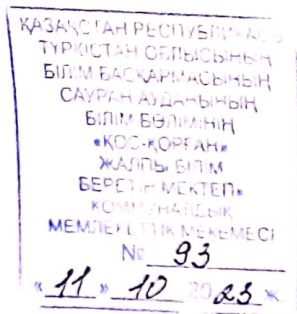 ҚАЗАҚСТАН РЕСПУБЛИКАСЫ
ТҮРКІСТАН ОБЛЫСЫНЫҢ
БІЛІМ БАСҚАРМАСЫНЫҢ
САУРАН АУДАНЫНЫҢ
БІЛІМ БӨЛІМІНІҢ
«ҚОС-ҚОРҒАН»
ЖАЛПЫ БІЛІМ
БЕРЕТІН МЕКТЕП»
КОММУНАЛДЫҚ
МЕМЛЕКЕТТІК МЕКЕМЕСІ
№ 93
«11» 10 2023 ж